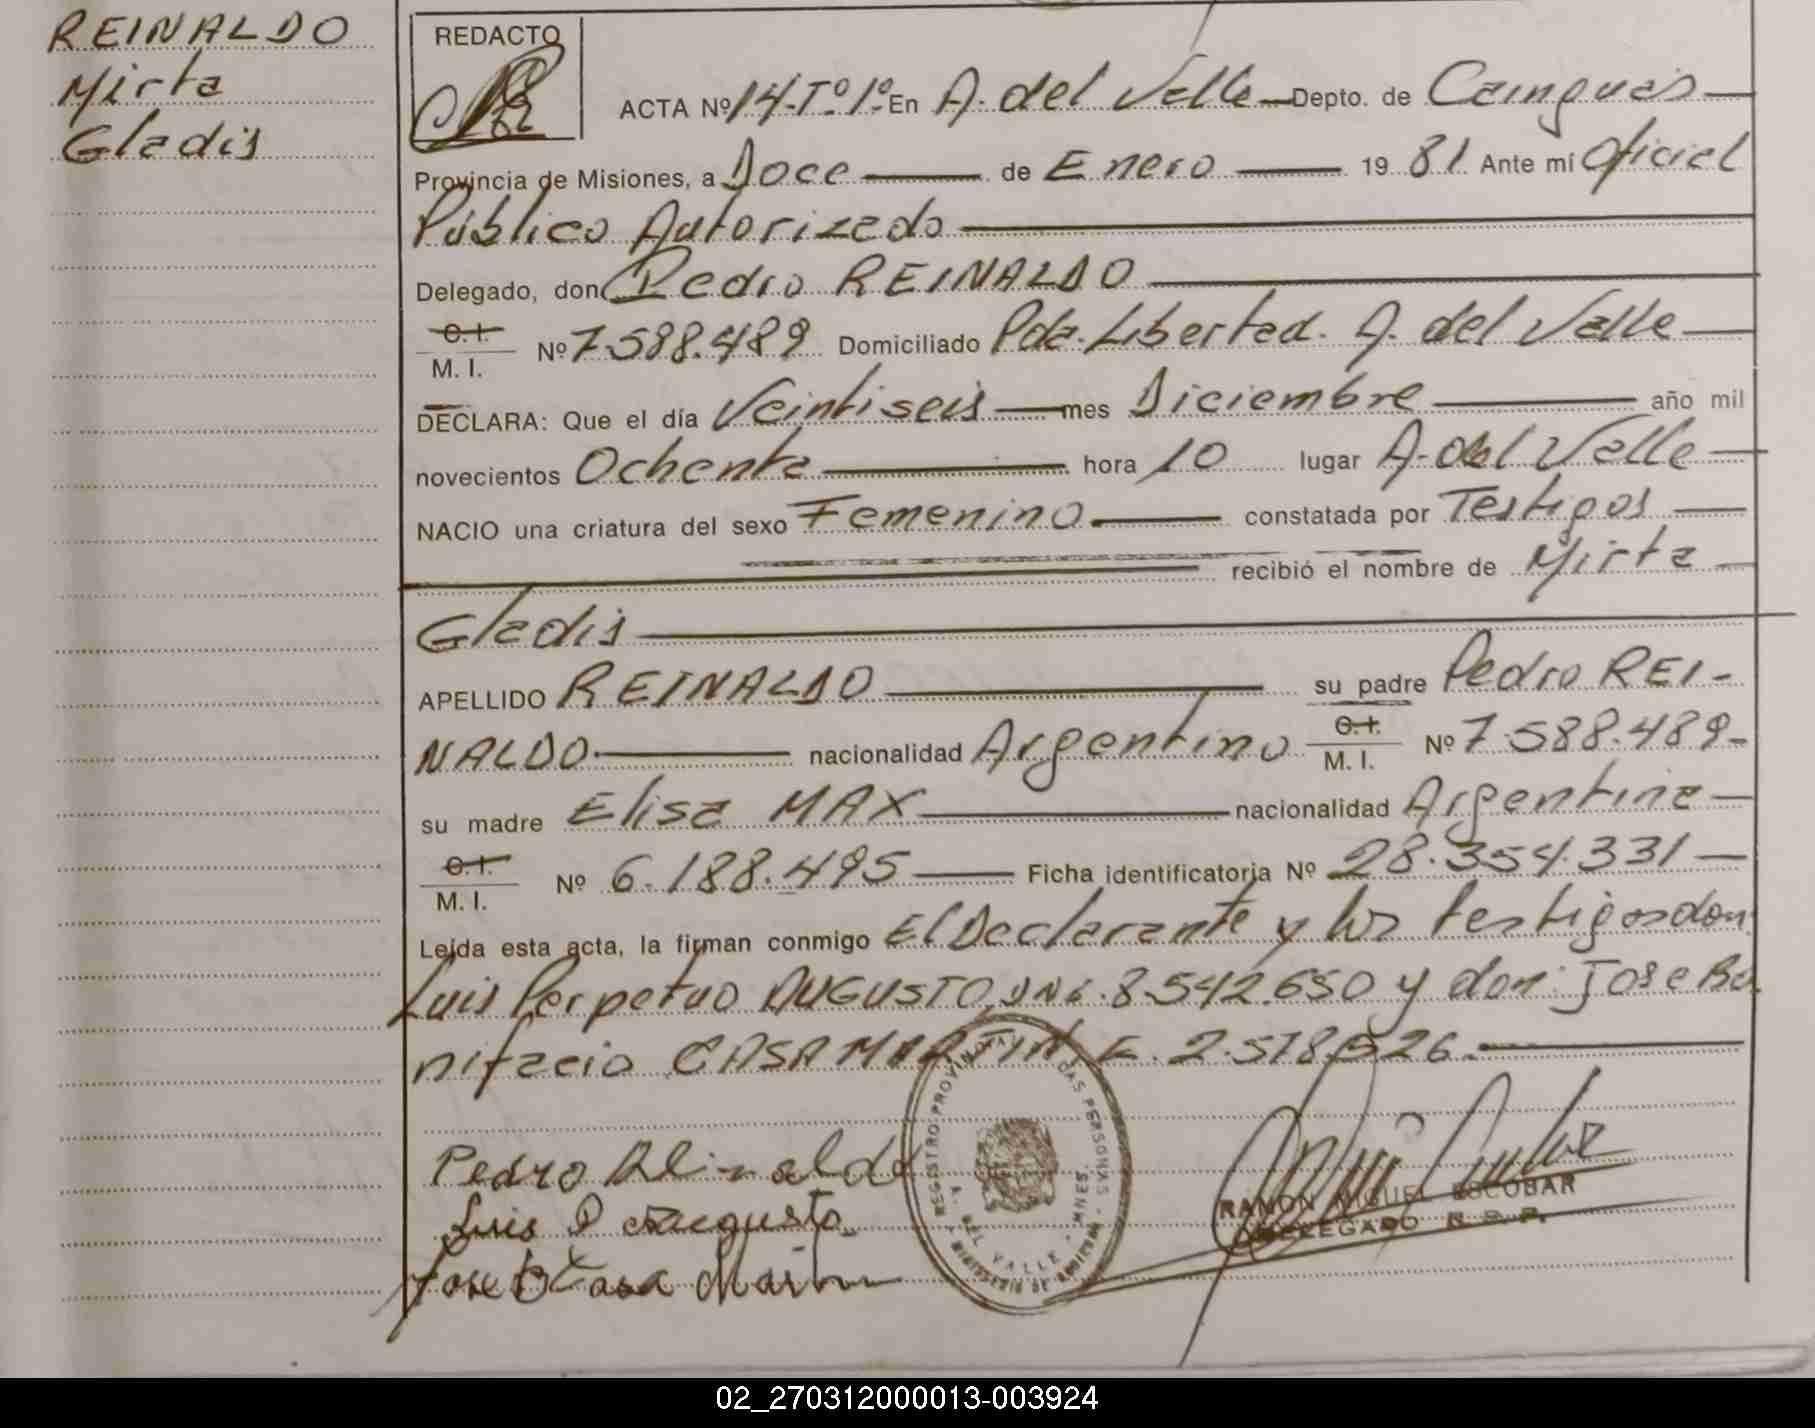 REINALDO
Mirta
Gladis
REDACTO
ACTA Nº 14-Tº1º En A. del Valle Depto. de Cainguás
Provincia de Misiones, a Doce de Enero 19 81 Ante mí Oficial
Público Autorizado
Delegado, don Pedro REINALDO
C.I.
M. I. Nº 7.588.489 Domiciliado Pda. Libertad. A. del Valle
DECLARA: Que el día Veintiseis mes Diciembre año mil
novecientos Ochenta hora 10 lugar A. del Valle
NACIO una criatura del sexo Femenino constatada por Testigos
recibió el nombre de Mirta
Gladis
APELLIDO REINALDO su padre Pedro REI-
NALDO nacionalidad Argentino C.I. M. I. Nº 7.588.489-
su madre Elisa MAX nacionalidad Argentina
C.I.
M. I. Nº 6.188.495 Ficha identificatoria Nº 28.354.331
Leída esta acta, la firman conmigo El Declarante y los testigos don
Luis Perpetuo AUGUSTO, DNI. 8.542.650 y don: Jose Bo
nifacio CASA MARTIN E. 2.578.526.
Pedro Reinaldo
Luis P Augusto
Jose B Casa Martin
REGISTRO PROVINCIAL DE LAS PERSONAS
A. DEL VALLE - MNES.
MINISTERIO DE
RAMON MIGUEL ESCOBAR
DELEGADO R. P. P.
02_270312000013-003924